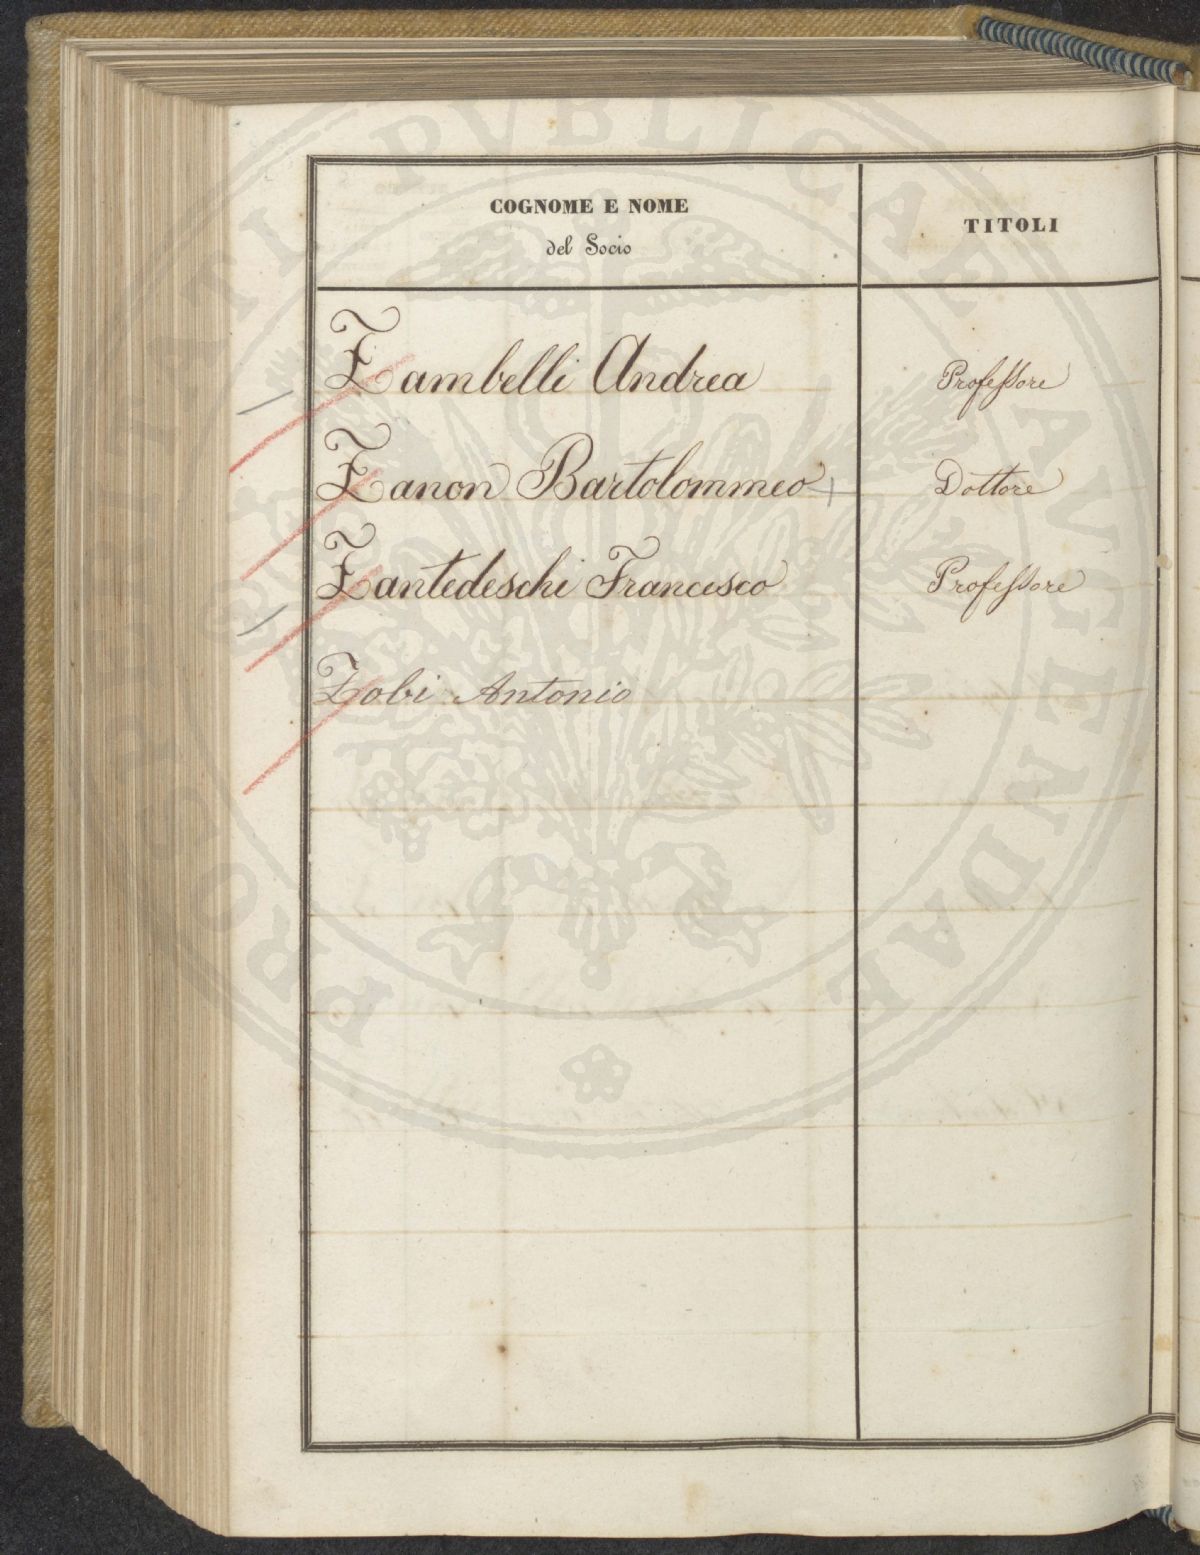 COGNOME E NOME
del Socio
TITOLI
Zambelli Andrea Professore
Zanon Bartolommeo Dottore
Zantedeschi Francesco Professore
Zobi Antonio
PROSPERITATI PVBLICAE AVGENDAE